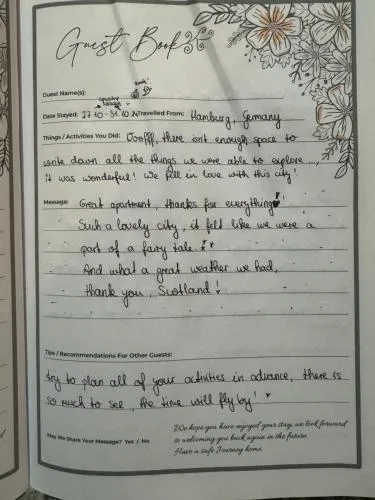 Guest Book
Boo!
Guest Name(s):
spooky
season
Date Stayed: 27.10 - 31.10.24 Travelled From: Hamburg, Germany
Things / Activities You Did: Oooffff, there isn't enough space to
write down all the things we were able to explore...,
it was wonderful! We fell in love with this city!
Message: Great apartment, thanks for everything!
Such a lovely city, it felt like we were a
part of a fairy tale.
And what a great weather we had,
thank you, Scotland!
Tips / Recommendations For Other Guests:
try to plan all of your activities in advance, there is
so much to see, the time will fly by!
May We Share Your Message? Yes / No
We hope you have enjoyed your stay, we look forward
to welcoming you back again in the future.
Have a safe Journey home.